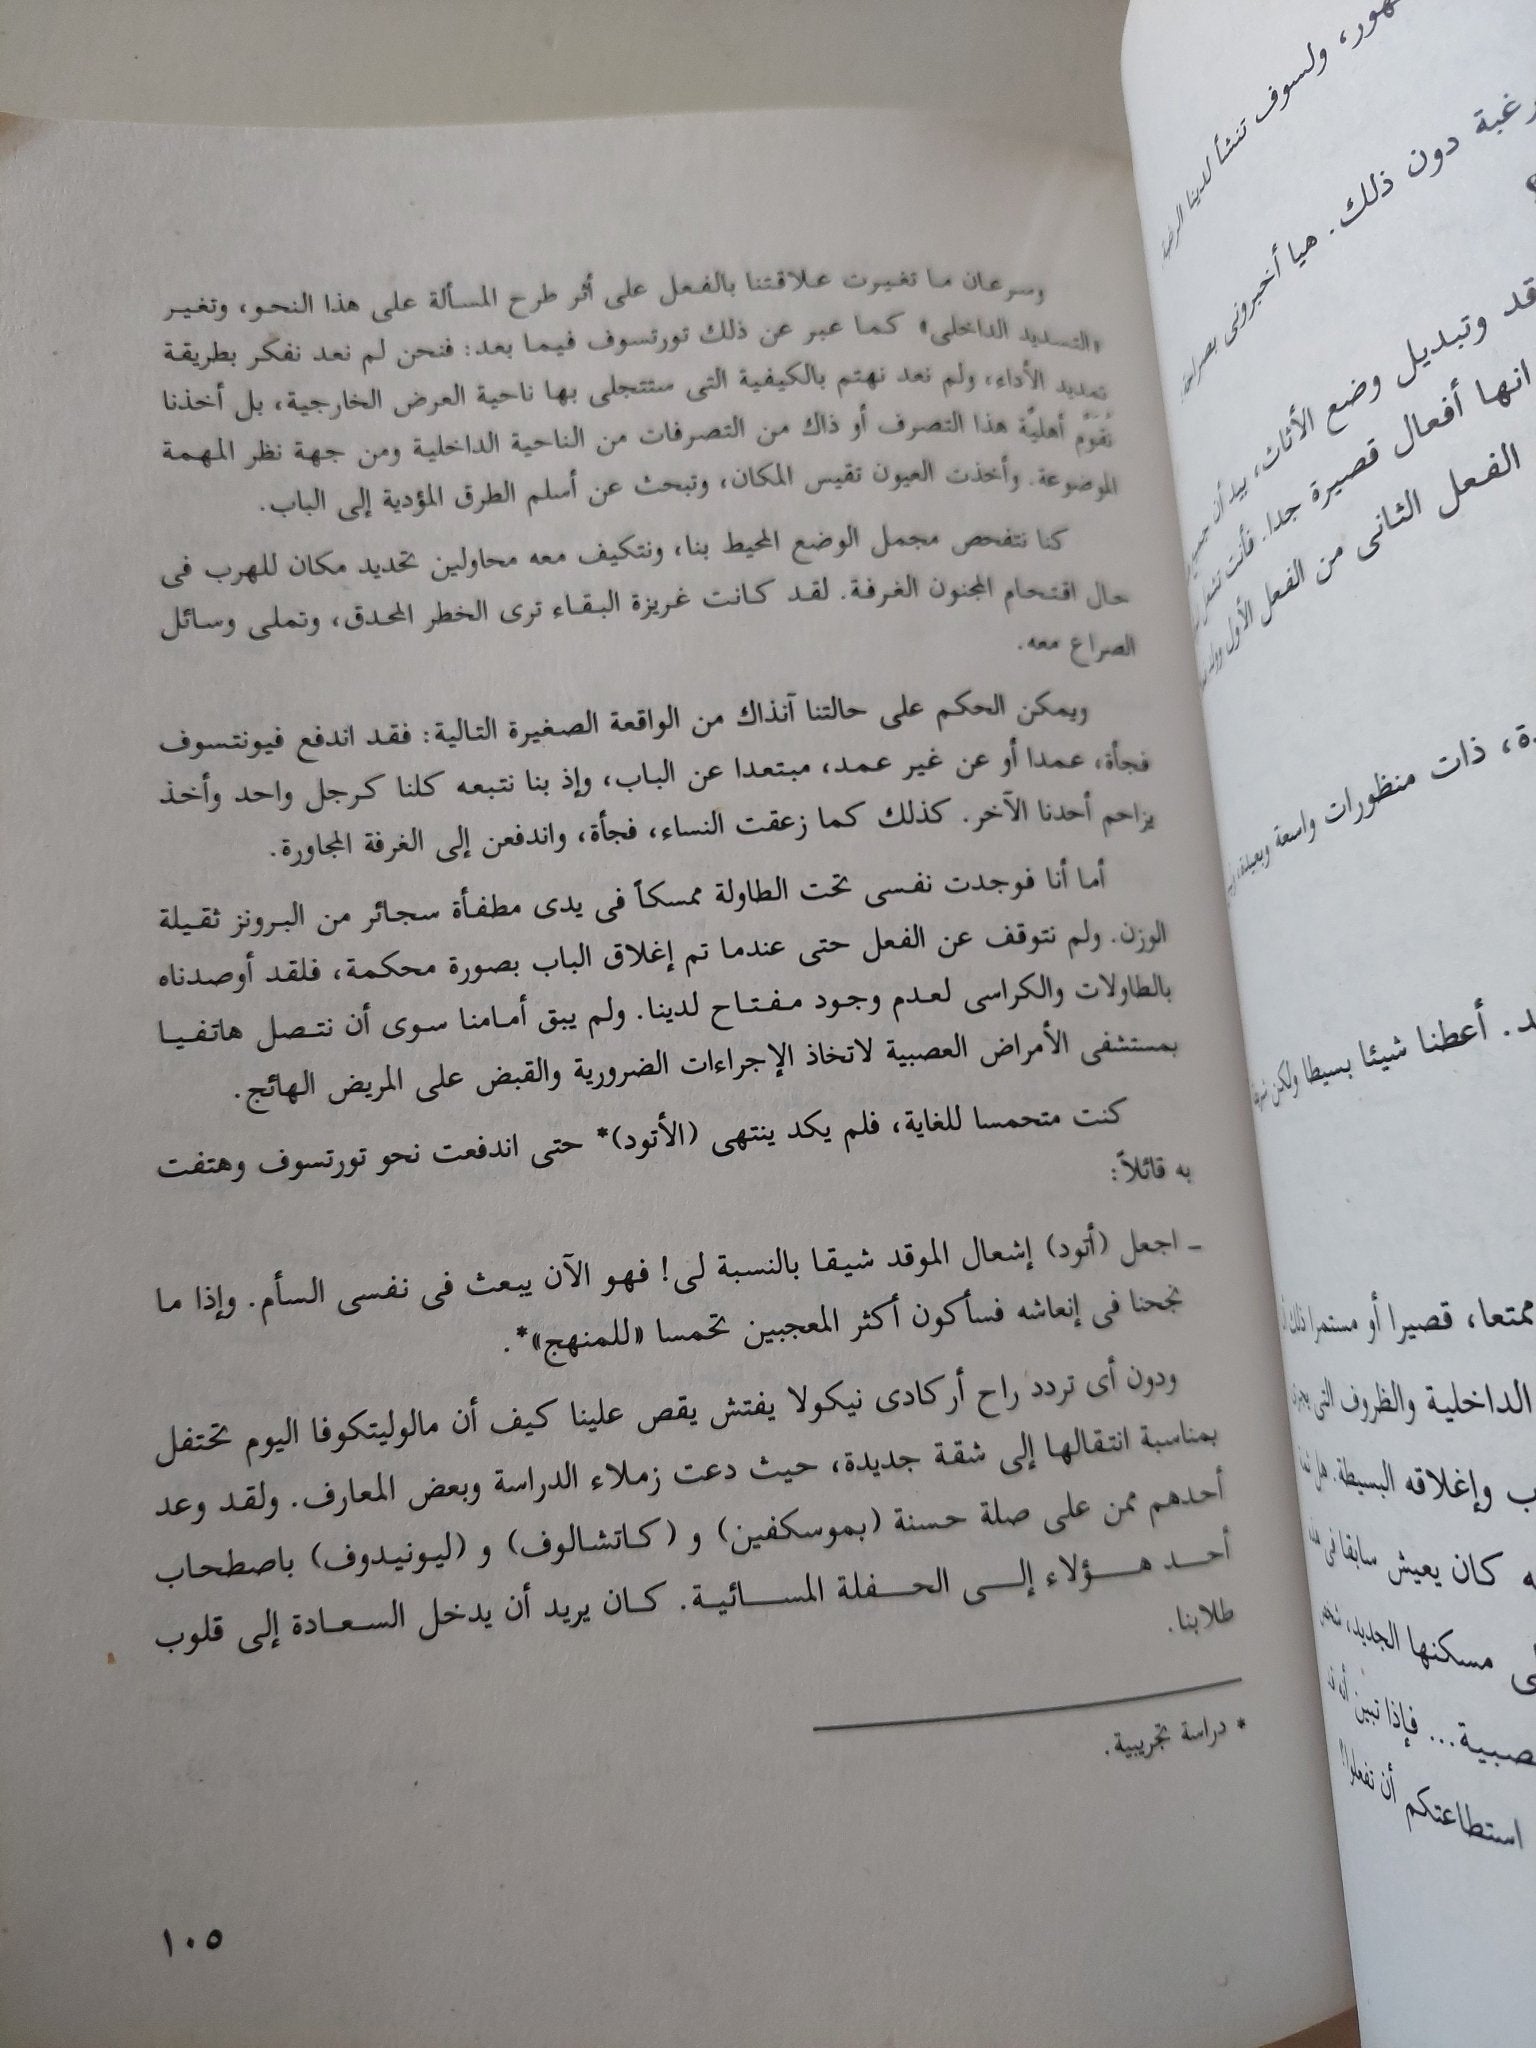 وسرعان ما تغيرت علاقتنا بالفعل على أثر طرح المسألة على هذا النحو، وتغير
«التسديد الداخلى» كما عبر عن ذلك تورتسوف فيما بعد: فنحن لم نعد نفكر بطريقة
تمديد الأداء، ولم نعد نهتم بالكيفية التى ستتجلى بها ناحية العرض الخارجية، بل أخذنا
نُقوِّم أهلية هذا التصرف أو ذاك من التصرفات من الناحية الداخلية ومن جهة نظر المهمة
الموضوعة. وأخذت العيون تقيس المكان، وتبحث عن أسلم الطرق المؤدية إلى الباب.
كنا نتفحص مجمل الوضع المحيط بنا، ونتكيف معه محاولين تحديد مكان للهرب فى
حال اقتحام المجنون الغرفة. لقد كانت غريزة البقاء ترى الخطر المحدق، وتملى وسائل
الصراع معه.
ويمكن الحكم على حالتنا آنذاك من الواقعة الصغيرة التالية: فقد اندفع فيونتسوف
فجأة، عمدا أو عن غير عمد، مبتعدا عن الباب، وإذ بنا نتبعه كلنا كرجل واحد وأخذ
يزاحم أحدنا الآخر. كذلك كما زعقت النساء، فجأة، واندفعن إلى الغرفة المجاورة.
أما أنا فوجدت نفسى تحت الطاولة ممسكاً فى يدى مطفأة سجائر من البرونز ثقيلة
الوزن. ولم نتوقف عن الفعل حتى عندما تم إغلاق الباب بصورة محكمة، فلقد أوصدناه
بالطاولات والكراسى لعدم وجود مفتاح لدينا. ولم يبق أمامنا سوى أن نتصل هاتفيا
بمستشفى الأمراض العصبية لاتخاذ الإجراءات الضرورية والقبض على المريض الهائج.
كنت متحمسا للغاية، فلم يكد ينتهى (الأتود)* حتى اندفعت نحو تورتسوف وهتفت
به قائلاً:
– اجعل (أتود) إشعال الموقد شيقا بالنسبة لى! فهو الآن يبعث فى نفسى السأم. وإذا ما
نجحنا فى إنعاشه فسأكون أكثر المعجبين تحمسا «للمنهج»*.
ودون أى تردد راح أركادى نيكولا يفتش يقص علينا كيف أن مالوليتكوفا اليوم تحتفل
بمناسبة انتقالها إلى شقة جديدة، حيث دعت زملاء الدراسة وبعض المعارف. ولقد وعد
أحدهم ممن على صلة حسنة (بموسكفين) و (كاتشالوف) و (ليونيدوف) باصطحاب
أحد هؤلاء إلى الحفلة المسائية. كان يريد أن يدخل السعادة إلى قلوب
طلابنا.
* دراسة تجريبية.
١٠٥
ولسوف تنشأ لدينا
دون ذلك. هيا أخبرونى
وتبديل وضع الأثاث، بيد أن
انها أفعال قصيرة جدا. فأنت تشعر
الفعل الثانى من الفعل الأول
ذات منظورات واسعة وبعيدة،
أعطنا شيئا بسيطا ولكن
ممتعا، قصيرا أو مستمرا ذلك
الداخلية والظروف التى
وإغلاقه البسيطة. هل
كان يعيش سابقا فى
مسكنها الجديد، شخص
... فإذا تبين أنه
استطاعتكم أن تفعلوا؟